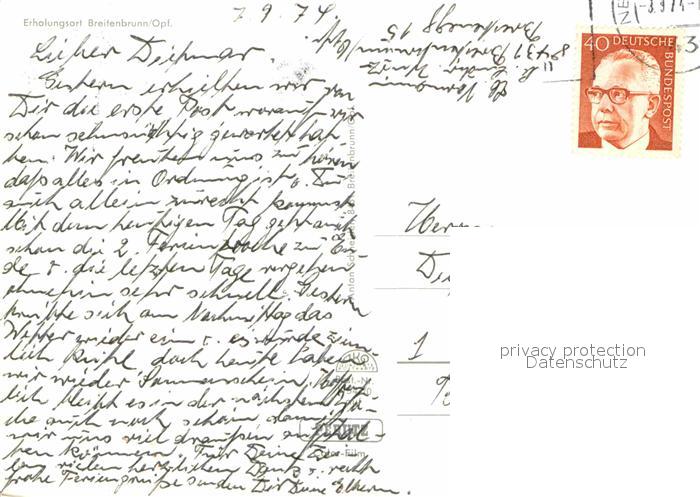 Erholungsort Breitenbrunn/Opf.
7.9.74
Lieber Dietmar.
Gestern erhielten wir von
Dir die erste Post worauf wir
schon sehnsüchtig gewartet hat
ten. Wir freuten uns, zu hören
daß alles in Ordnung ist u. Du
auch allein zurecht kommst
Mit dem heutigen Tag geht auch
schon die 2. Ferienwoche zu En-
de u. die letzten Tage vergehen
ohnehin sehr schnell. Gestern
trübte sich am Nachmittag das
Wetter wieder ein u. es wurde ziem
lich kühl, doch heute haben
wir wieder Sonnenschein. Hoffent
lich bleibt es in der nächsten Wo-
che auch noch schön damit
wir uns viel draußen aufhal-
ten können. Für Deine Zei-
len vielen herzlichen Dank u. recht
frohe Feriengrüße senden Dir Deine Eltern.
8431 Breitenbrunn/Opf.
Breitenegg 15
40 DEUTSCHE BUNDESPOST
Herrn
1
PERUTZ
Color-Film
privacy protection
Datenschutz